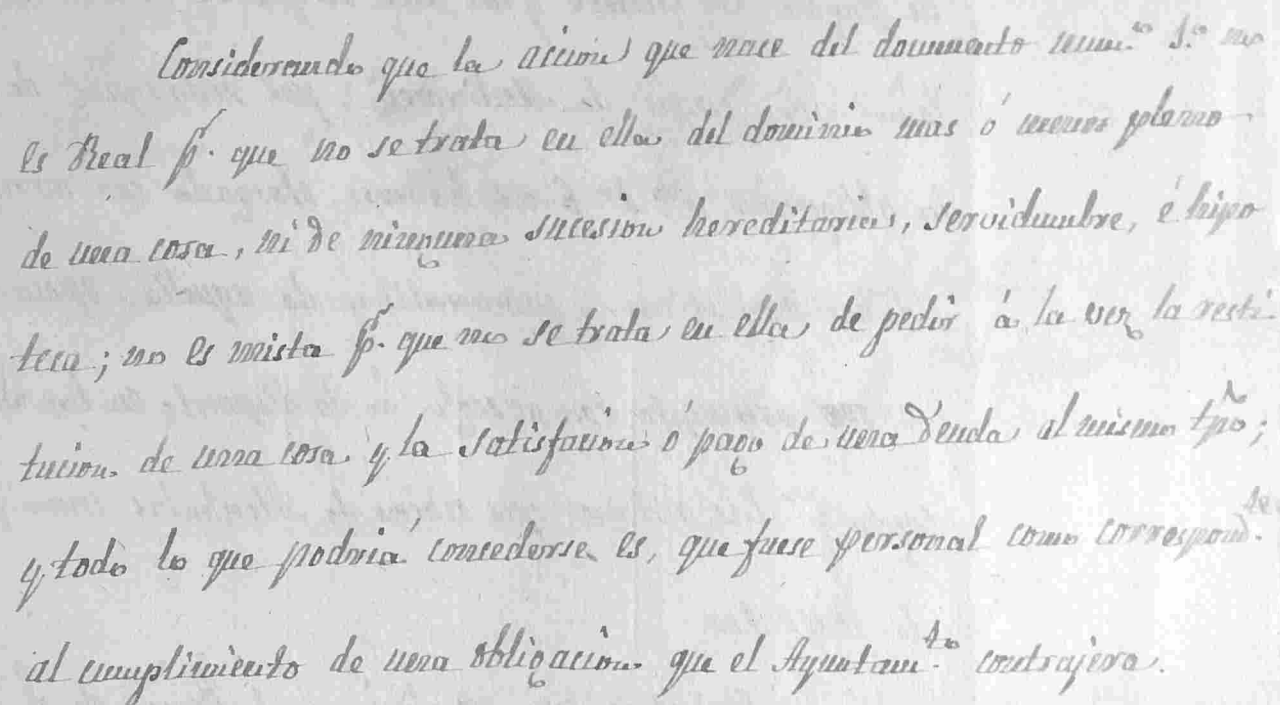 Considerando que la accion que nace del documento num.º 1.º no
es Real p.ª que no se trata en ella del dominio mas ó menos pleno
de una cosa, ni de ninguna sucesion hereditaria, servidumbre, é hipo
teca; no es mista p.ª que no se trata en ella de pedir á la vez la resti-
tucion de una cosa y la satisfacion ó pago de una deuda al mismo tpo;
y todo lo que podria concederse es, que fuese personal como correspond.te
al cumplimiento de una obligacion que el Ayuntam.to contrajera.